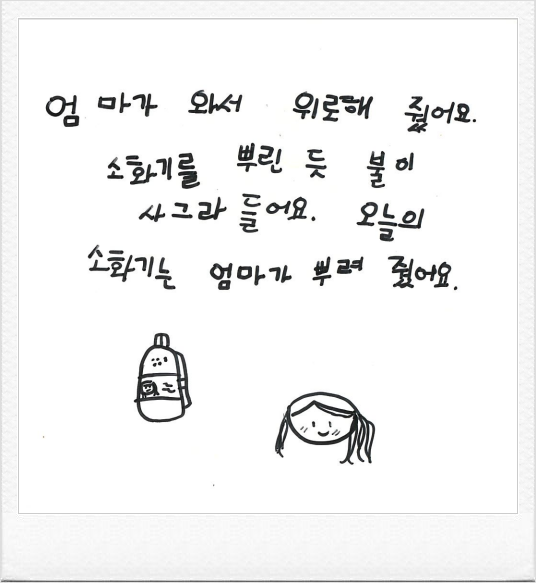 엄마가 와서 위로해 줬어요.
소화기를 뿌린 듯 불이
사그라 들어요. 오늘의
소화기는 엄마가 뿌려 줬어요.